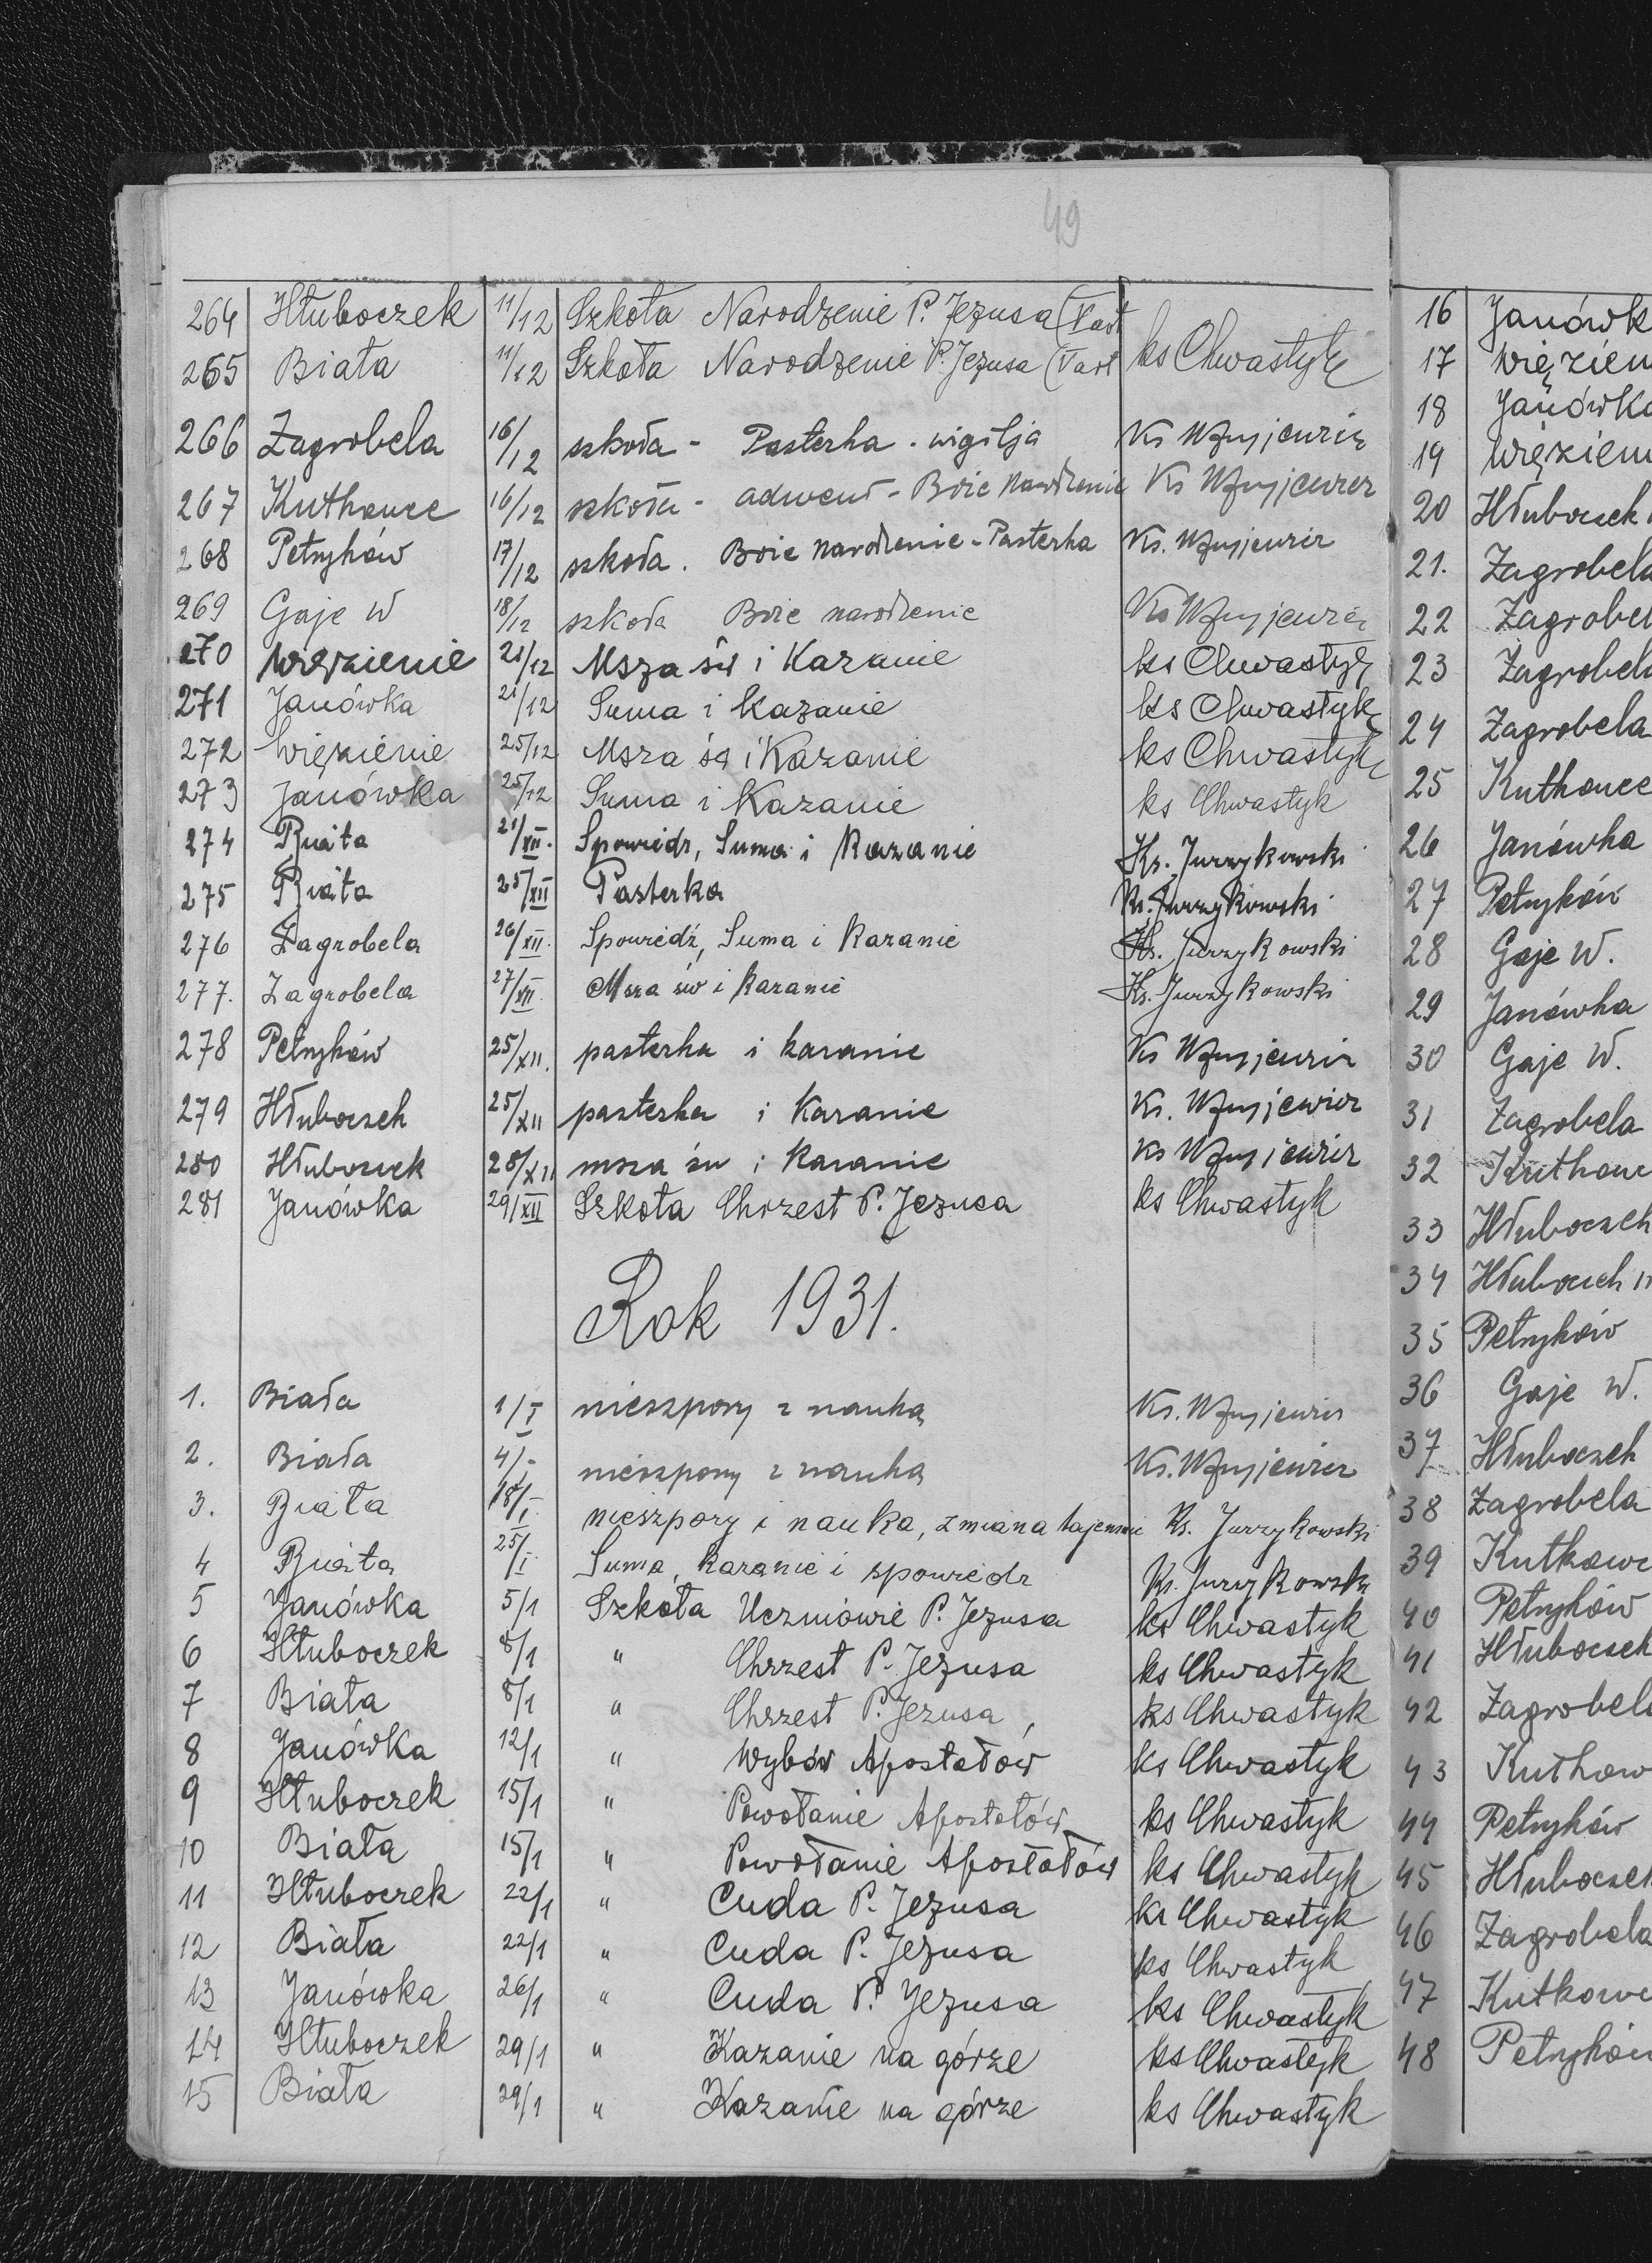 49
264 Hłuboczek 11/12 Szkoła Narodzenie P. Jezusa
265 Biała 11/12 Szkoła Narodzenie P. Jezusa ks Chwastyk
266 Zagrobela 16/12 szkoła - Pasterka - wigilja Ks
267 Kutkowce 16/12 szkoła - adwent - Boże Narodzenie Ks
268 Petryków 17/12 szkoła. Boże Narodzenie - Pasterka Ks.
269 Gaje W 18/12 szkoła Boże narodzenie Ks
270 Więzienie 21/12 Msza św i Kazanie ks Chwastyk
271 Janówka 21/12 Suma i kazanie ks Chwastyk
272 Więzienie 25/12 Msza św i Kazanie ks Chwastyk
273 Janówka 25/12 Suma i Kazanie ks Chwastyk
274 Biała 21/XII. Spowiedź, Suma i Kazanie Ks. Jurzykowski
275 Biała 25/XII Pasterka Ks. Jurzykowski
276 Zagrobela 26/XII. Spowiedź, Suma i Kazanie Ks. Jurzykowski
277. Zagrobela 27/XII. Msza św i Kazanie Ks. Jurzykowski
278 Petryków 25/XII. pasterka i kazanie Ks
279 Hłuboczek 25/XII pasterka i Kazanie Ks.
280 Hłuboczek 28/XII msza św i Kazanie Ks
281 Janówka 29/XII Szkoła Chrzest P. Jezusa ks Chwastyk
Rok 1931.
1. Biała 1/I nieszpory z nauką Ks.
2. Biała 4/- nieszpory z nauką Ks.
3. Biała 18/I nieszpory i nauka, zmiana tajemnic Ks. Jurzykowski
4 Biała 25/I Suma, Kazanie i spowiedz Ks. Jurzykowski
5 Janówka 5/1 Szkoła Uczniowie P. Jezusa ks Chwastyk
6 Hłuboczek 8/1 " Chrzest P. Jezusa ks Chwastyk
7 Biała 8/1 " Chrzest P. Jezusa ks Chwastyk
8 Janówka 12/1 " Wybór Apostołów ks Chwastyk
9 Hłuboczek 15/1 " Powołanie Apostołów ks Chwastyk
10 Biała 15/1 " Powołanie Apostołów ks Chwastyk
11 Hłuboczek 22/1 " Cuda P. Jezusa ks Chwastyk
12 Biała 22/1 " Cuda P. Jezusa ks Chwastyk
13 Janówka 26/1 " Cuda P. Jezusa ks Chwastyk
14 Hłuboczek 29/1 " Kazanie na górze ks Chwastyk
15 Biała 29/1 " Kazanie na górze ks Chwastyk
16 Janówk
17 Więzien
18 Janówka
19 Więzien
20 Hłuboczek
21. Zagrobela
22 Zagrobel
23 Zagrobela
24 Zagrobela
25 Kutkowce
26 Janówka
27 Petryków
28 Gaje W.
29 Janówka
30 Gaje W.
31 Zagrobela
32 Kutkowc
33 Hłuboczek
34 Hłuboczek
35 Petryków
36 Gaje W.
37 Hłuboczek
38 Zagrobela
39 Kutkowc
40 Petryków
41 Hłuboczek
42 Zagrobela
43 Kutkow
44 Petryków
45 Hłuboczek
46 Zagrobela
47 Kutkowc
48 Petryków